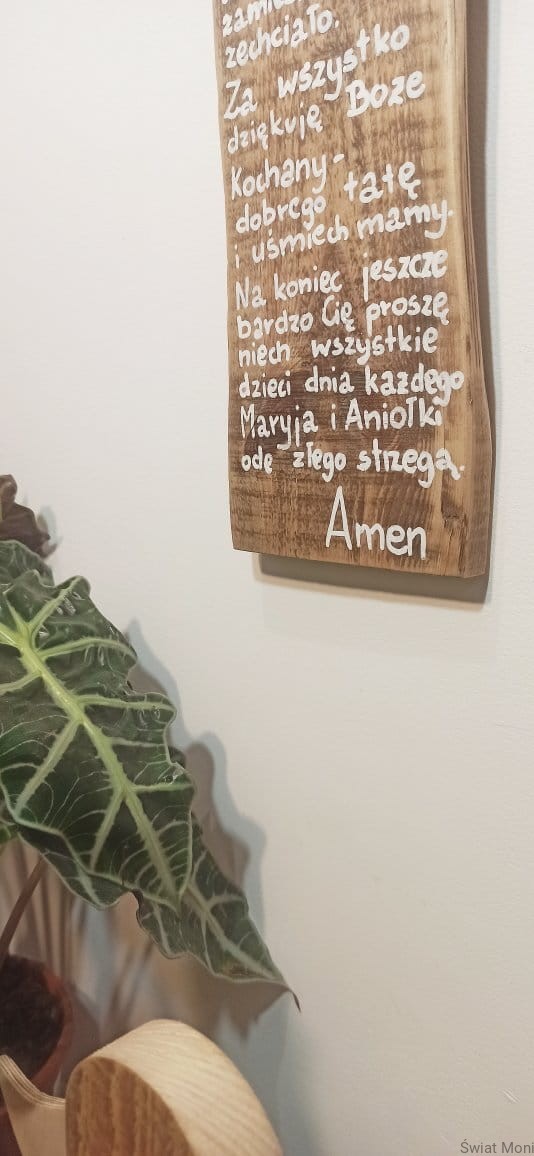 zechciało.
Za wszystko
dziękuję Boże
Kochany -
dobrego tatę
i uśmiech mamy.
Na koniec jeszcze
bardzo Cię proszę
niech wszystkie
dzieci dnia każdego
Maryja i Aniołki
ode złego strzegą.
Amen
Świat Moni